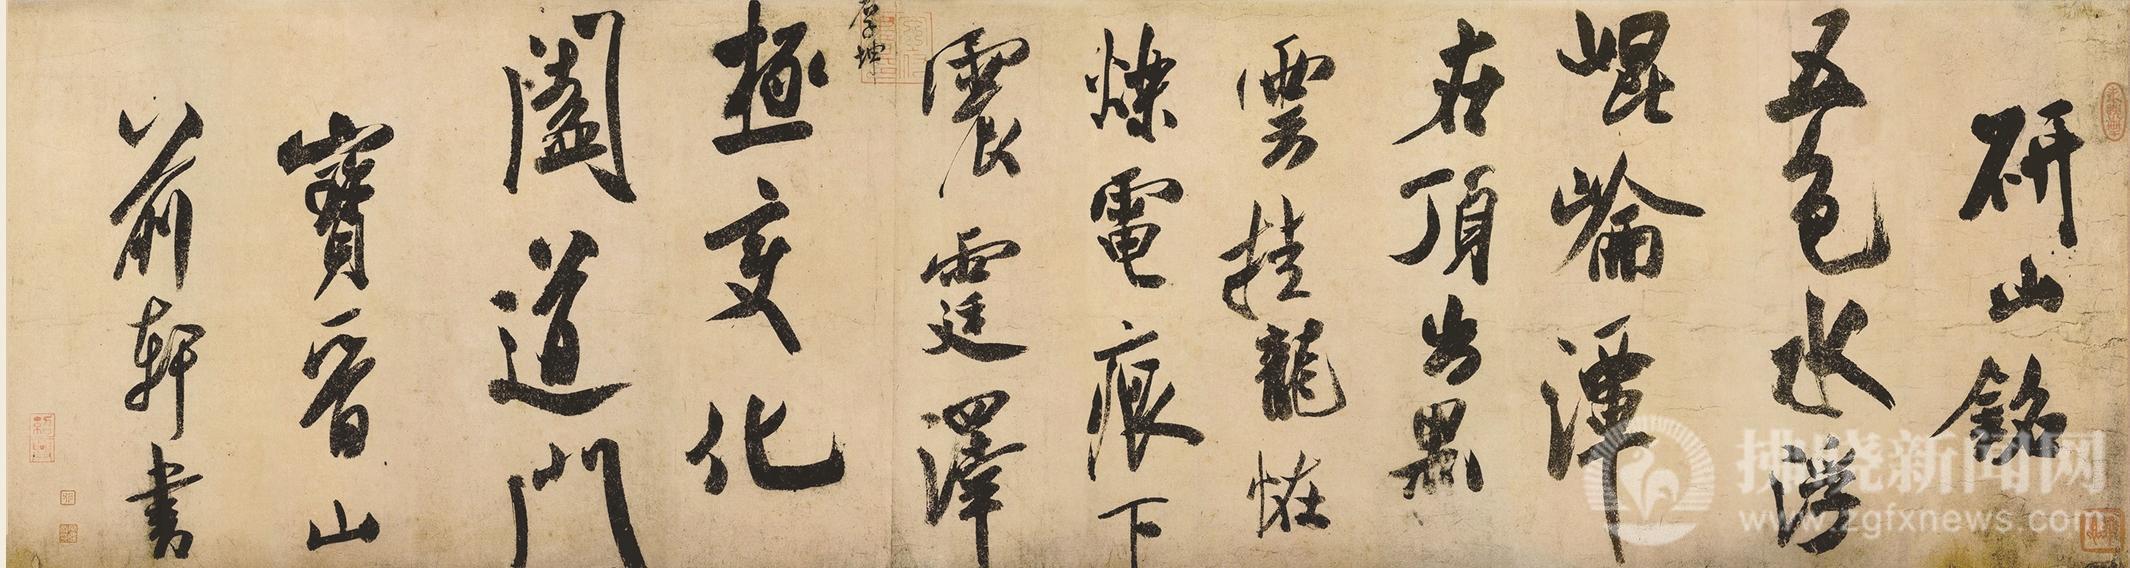 研山銘
五色水浮
崐崘潭
在頂出黑
雲挂龍恠
爍電痕下
震霆澤
厚坤
極变化
闔道門
寳晉山
前軒書
拂晓新闻网
www.zgfxnews.com